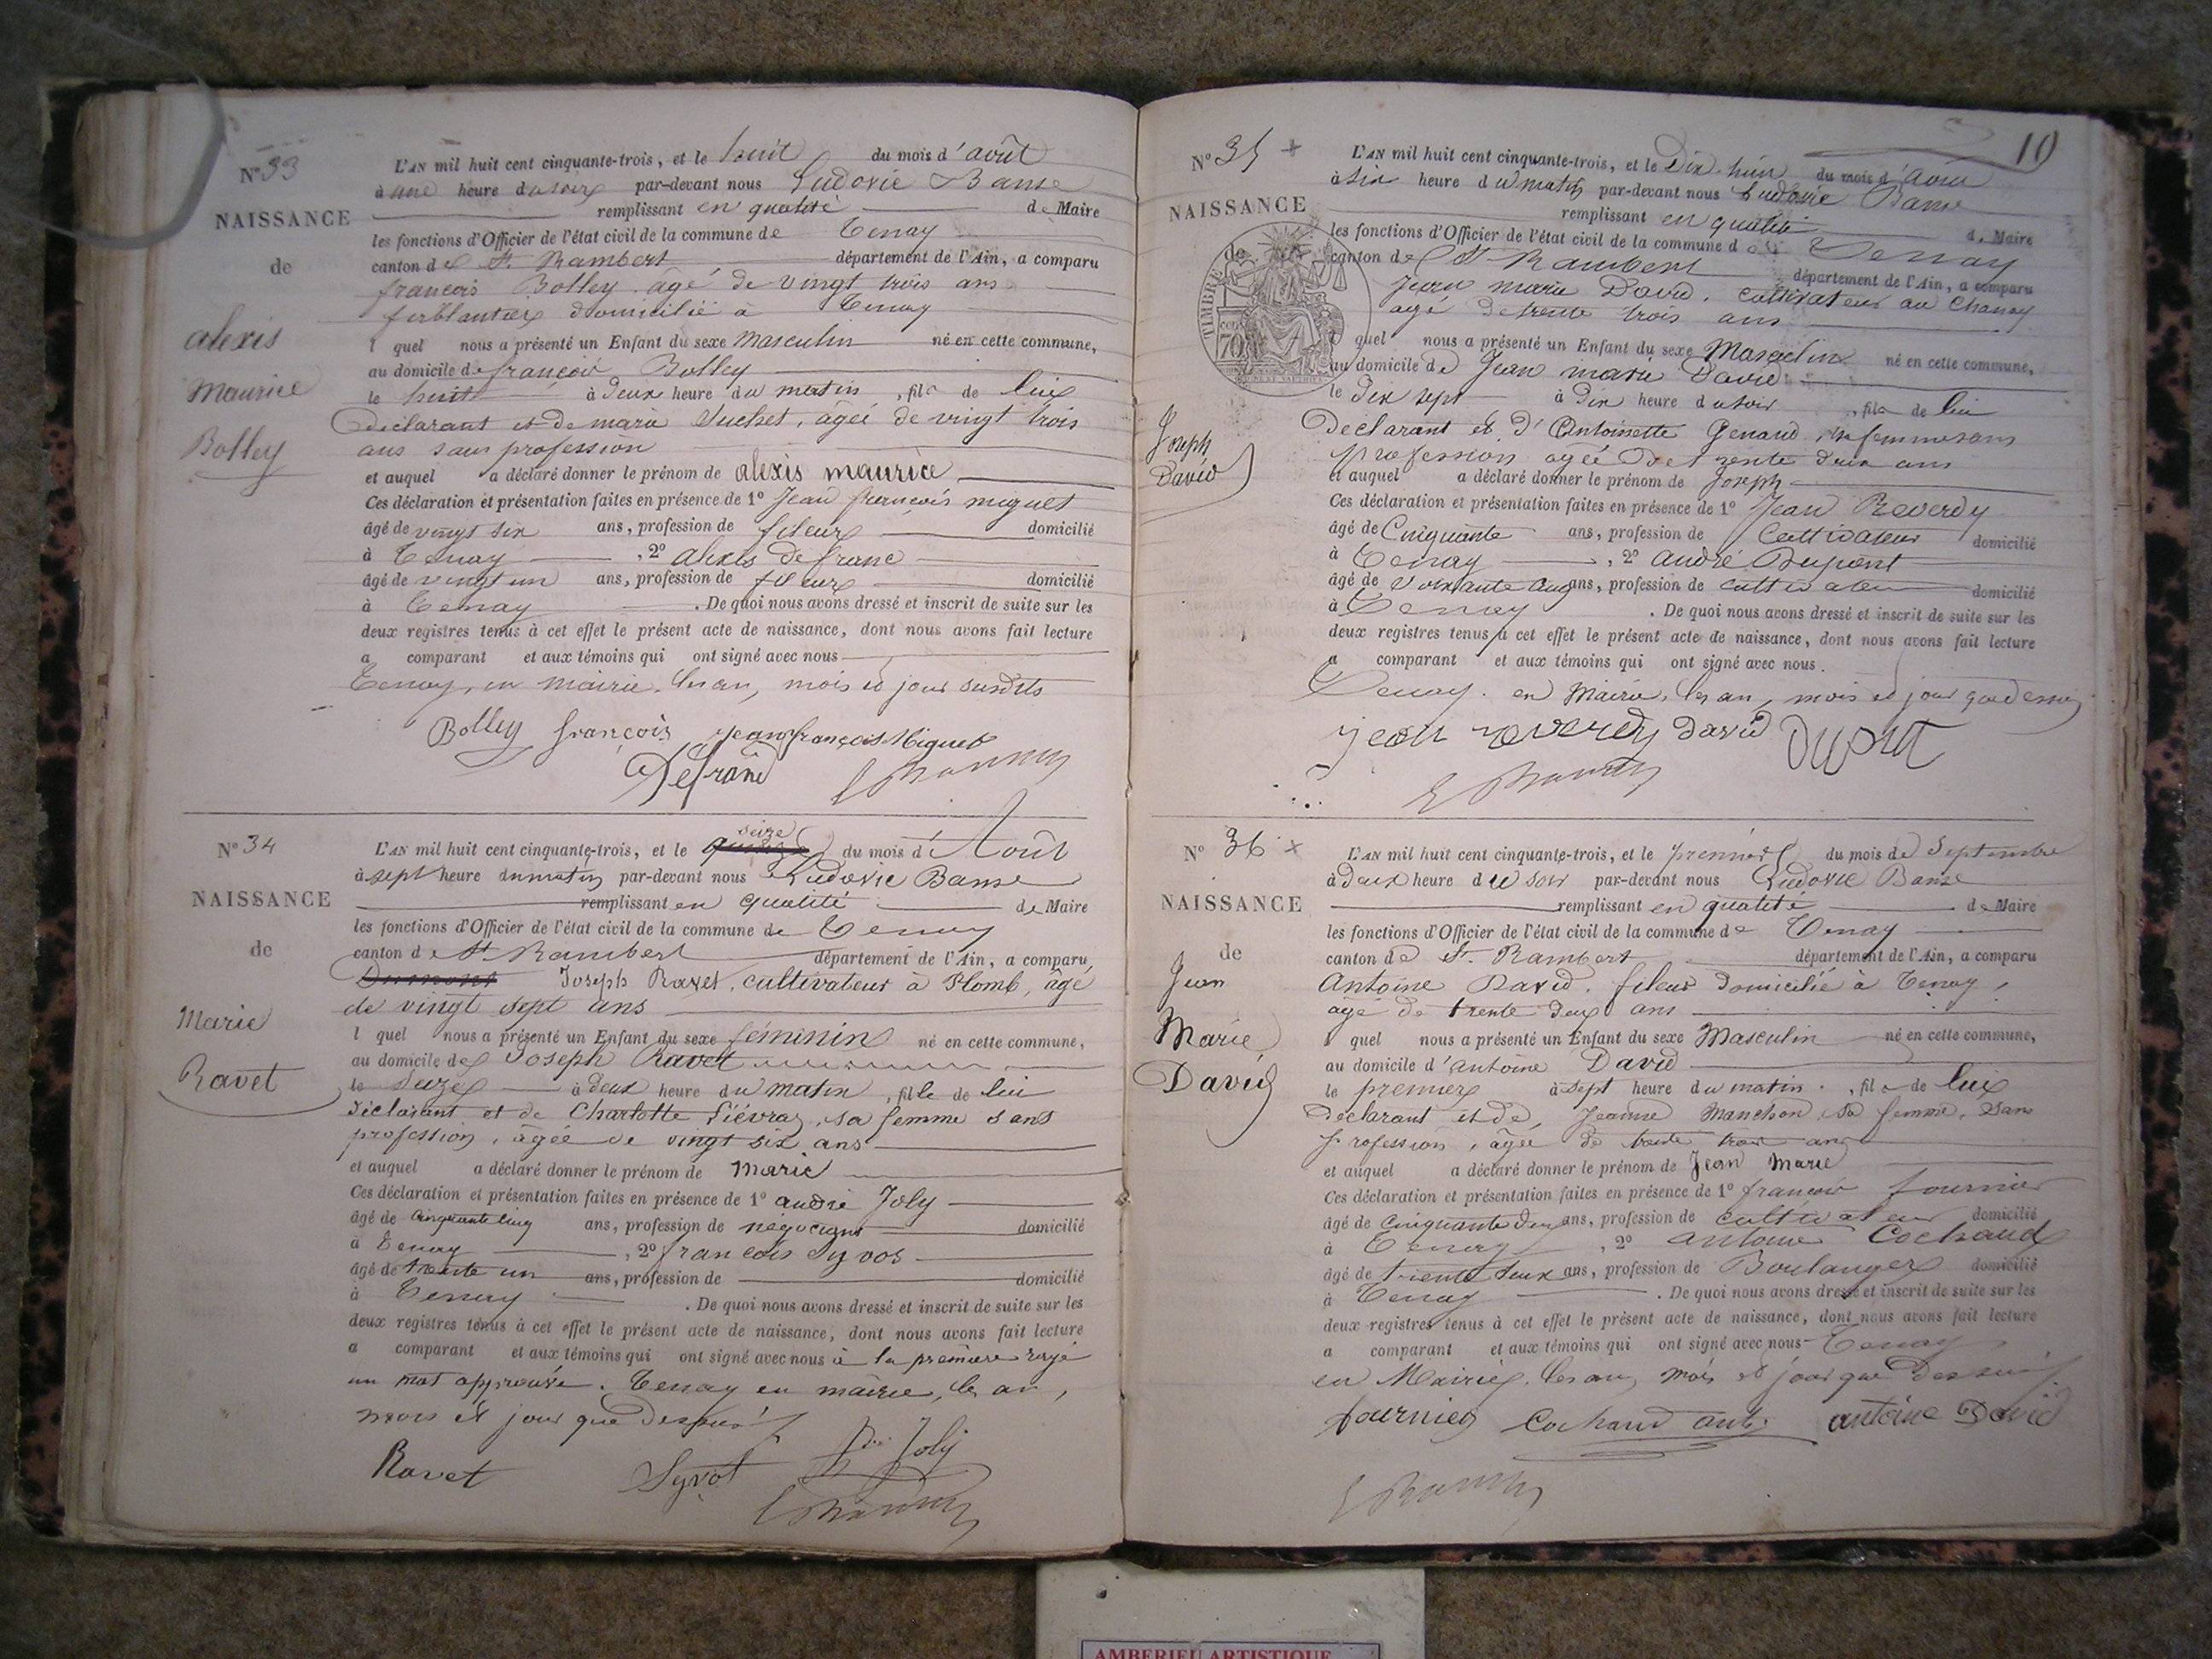 N° 33
NAISSANCE
de
alexis
Maurice
Bolley
L'AN mil huit cent cinquante-trois, et le huit du mois d'août
à une heure du soir par-devant nous Ludovic Banse
remplissant en qualité de Maire
les fonctions d'Officier de l'état civil de la commune de Tenay
canton de St. Rambert département de l'Ain, a comparu
francois Bolley. âgé de vingt trois ans
ferblantier domicilié à Tenay
l quel nous a présenté un Enfant du sexe Masculin né en cette commune,
au domicile de françois Bolley
le huit à deux heure du matin, fils de lui
Déclarant et de marie Suchet, âgée de vingt trois
ans sans profession
et auquel a déclaré donner le prénom de alexis maurice
Ces déclaration et présentation faites en présence de 1° Jean francois miguet
âgé de vingt six ans, profession de fileur domicilié
à Tenay, 2° alexis defranc
âgé de vingt un ans, profession de fileur domicilié
à Tenay. De quoi nous avons dressé et inscrit de suite sur les
deux registres tenus à cet effet le présent acte de naissance, dont nous avons fait lecture
a comparant et aux témoins qui ont signé avec nous
Tenay, en mairie, les an, mois et jour susdits
Bolley françois jean françois Miguet
Defranc
N° 34
NAISSANCE
de
Marie
Ravet
L'AN mil huit cent cinquante-trois, et le seize du mois d'Août
à sept heure du matin par-devant nous Ludovic Banse
remplissant en qualité de Maire
les fonctions d'Officier de l'état civil de la commune de Tenay
canton de St. Rambert département de l'Ain, a comparu
Joseph Ravet, cultivateur à Plomb, âgé
de vingt sept ans
l quel nous a présenté un Enfant du sexe féminin né en cette commune,
au domicile de Joseph Ravet
le seize à deux heure du matin, fille de lui
déclarant et de Charlotte Liévraz, sa femme sans
profession, âgée de vingt six ans
et auquel a déclaré donner le prénom de Marie
Ces déclaration et présentation faites en présence de 1° andré Joly
âgé de cinquante cinq ans, profession de négociant domicilié
à Tenay, 2° francois Syvos
âgé de trente un ans, profession de domicilié
à Tenay. De quoi nous avons dressé et inscrit de suite sur les
deux registres tenus à cet effet le présent acte de naissance, dont nous avons fait lecture
a comparant et aux témoins qui ont signé avec nous à la première rayé
un mot approuvé. Tenay en mairie, les an,
mois et jour que dessus
Ravet Syvot Joly
10
N° 35
NAISSANCE
de
TIMBRE
70
Joseph
David
L'AN mil huit cent cinquante-trois, et le Dix huit du mois d'août
à six heure du matin par-devant nous Ludovic Banse
remplissant en qualité de Maire
les fonctions d'Officier de l'état civil de la commune d Tenay
canton de St. Rambert département de l'Ain, a comparu
Jean marie David, cultivateur au Chanay
âgé de trente trois ans
l quel nous a présenté un Enfant du sexe Masculin né en cette commune,
au domicile de Jean marie David
le dix sept à dix heure du soir, fils de lui
Déclarant et d'Antoinette Genaud, sa femme sans
profession âgée de trente deux ans
et auquel a déclaré donner le prénom de Joseph
Ces déclaration et présentation faites en présence de 1° Jean Reverdy
âgé de Cinquante ans, profession de Cultivateur domicilié
à Tenay, 2° andré Dupont
âgé de soixante cinq ans, profession de cultivateur domicilié
à Tenay. De quoi nous avons dressé et inscrit de suite sur les
deux registres tenus à cet effet le présent acte de naissance, dont nous avons fait lecture
a comparant et aux témoins qui ont signé avec nous.
Tenay. en Mairie, les an, mois et jour que dessus
jean reverdy David Dupont
N° 36
NAISSANCE
de
Jean
Marie
David
L'AN mil huit cent cinquante-trois, et le premier du mois de Septembre
à deux heure du soir par-devant nous Ludovic Banse
remplissant en qualité de Maire
les fonctions d'Officier de l'état civil de la commune de Tenay
canton de St. Rambert département de l'Ain, a comparu
Antoine David. fileur domicilié à Tenay,
âgé de trente deux ans
l quel nous a présenté un Enfant du sexe Masculin né en cette commune,
au domicile d'antoine David
le premier à sept heure du matin, fils de lui
Déclarant et de Jeanne Manchon, sa femme, sans
profession, âgée de trente trois ans
et auquel a déclaré donner le prénom de Jean Marie
Ces déclaration et présentation faites en présence de 1° françois fournier
âgé de cinquante deux ans, profession de cultivateur domicilié
à Tenay, 2° antoine Cochaud
âgé de trente deux ans, profession de Boulanger domicilié
à Tenay. De quoi nous avons dressé et inscrit de suite sur les
deux registres tenus à cet effet le présent acte de naissance, dont nous avons fait lecture
a comparant et aux témoins qui ont signé avec nous Tenay,
en Mairie, les an, mois et jour que dessus
fournier Cochaud ant. antoine David
AMBERIEU ARTISTIQUE